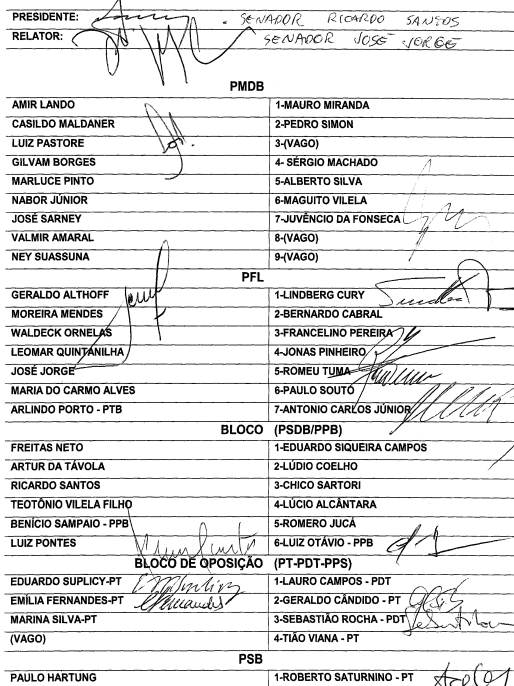 PRESIDENTE: SENADOR RICARDO SANTOS
RELATOR: SENADOR JOSÉ JORGE
PMDB
AMIR LANDO 1-MAURO MIRANDA
CASILDO MALDANER 2-PEDRO SIMON
LUIZ PASTORE 3-(VAGO)
GILVAM BORGES 4- SÉRGIO MACHADO
MARLUCE PINTO 5-ALBERTO SILVA
NABOR JÚNIOR 6-MAGUITO VILELA
JOSÉ SARNEY 7-JUVÊNCIO DA FONSECA
VALMIR AMARAL 8-(VAGO)
NEY SUASSUNA 9-(VAGO)
PFL
GERALDO ALTHOFF 1-LINDBERG CURY
MOREIRA MENDES 2-BERNARDO CABRAL
WALDECK ORNELAS 3-FRANCELINO PEREIRA
LEOMAR QUINTANILHA 4-JONAS PINHEIRO
JOSÉ JORGE 5-ROMEU TUMA
MARIA DO CARMO ALVES 6-PAULO SOUTO
ARLINDO PORTO - PTB 7-ANTONIO CARLOS JÚNIOR
BLOCO (PSDB/PPB)
FREITAS NETO 1-EDUARDO SIQUEIRA CAMPOS
ARTUR DA TÁVOLA 2-LÚDIO COELHO
RICARDO SANTOS 3-CHICO SARTORI
TEOTÔNIO VILELA FILHO 4-LÚCIO ALCÂNTARA
BENÍCIO SAMPAIO - PPB 5-ROMERO JUCÁ
LUIZ PONTES 6-LUIZ OTÁVIO - PPB
BLOCO DE OPOSIÇÃO (PT-PDT-PPS)
EDUARDO SUPLICY-PT 1-LAURO CAMPOS - PDT
EMÍLIA FERNANDES-PT 2-GERALDO CÂNDIDO - PT
MARINA SILVA-PT 3-SEBASTIÃO ROCHA - PDT
(VAGO) 4-TIÃO VIANA - PT
PSB
PAULO HARTUNG 1-ROBERTO SATURNINO - PT